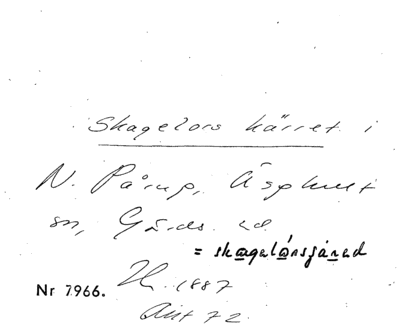 Skagelors kärret i
N. Pårup, Äsphult
sn, Gärds hd
= skagelårsjärad
Nr 7966. 1887
Ant 72